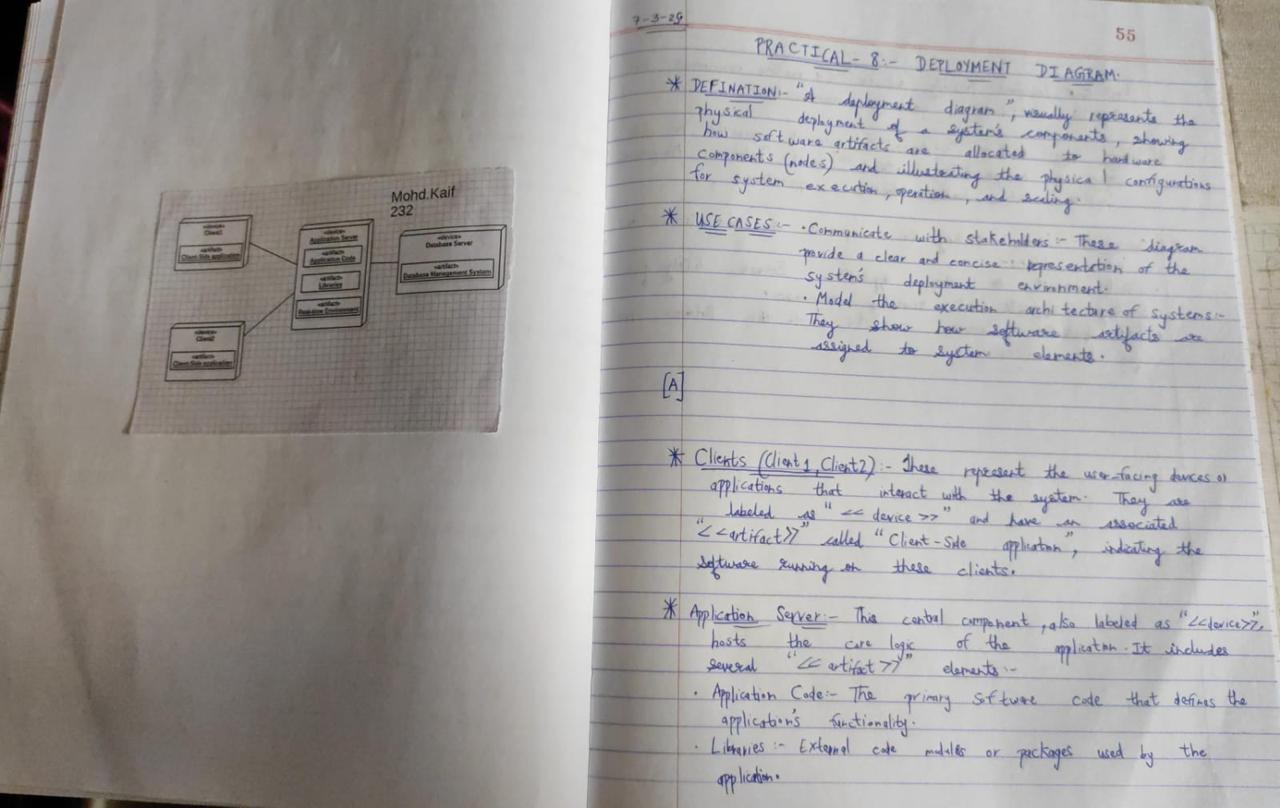 Mohd.Kaif
232
«device»
Client1
«artifact»
Client-Side application
«device»
Application Server
«artifact»
Application Code
«artifact»
Libraries
«artifact»
«device»
Database Server
«artifact»
Database Management System
«device»
Client2
«artifact»
Client-Side application
7-3-25
55
PRACTICAL- 8:- DEPLOYMENT DIAGRAM.
* DEFINATION:- "A deployment diagram", visually represents the
physical deployment of a system's components, showing
how software artifacts are allocated to hardware
components (nodes) and illustrating the physical configurations
for system execution, operation, and scaling.
* USE CASES:- • Communicate with stakeholders:- These diagram
provide a clear and concise representation of the
system's deployment environment.
• Model the execution architecture of systems:-
They show how software artifacts are
assigned to system elements.
[A]
* Clients (Client1, Client2):- These represent the user-facing devices or
applications that interact with the system. They are
labeled as "<< device >>" and have an associated
"<<artifact>>" called "Client-Side application", indicating the
software running on these clients.
* Application Server:- This central component, also labeled as "<<device>>",
hosts the core logic of the application. It includes
several "<< artifact >>" elements:-
• Application Code:- The primary software code that defines the
application's functionality.
• Libraries:- External code modules or packages used by the
application.